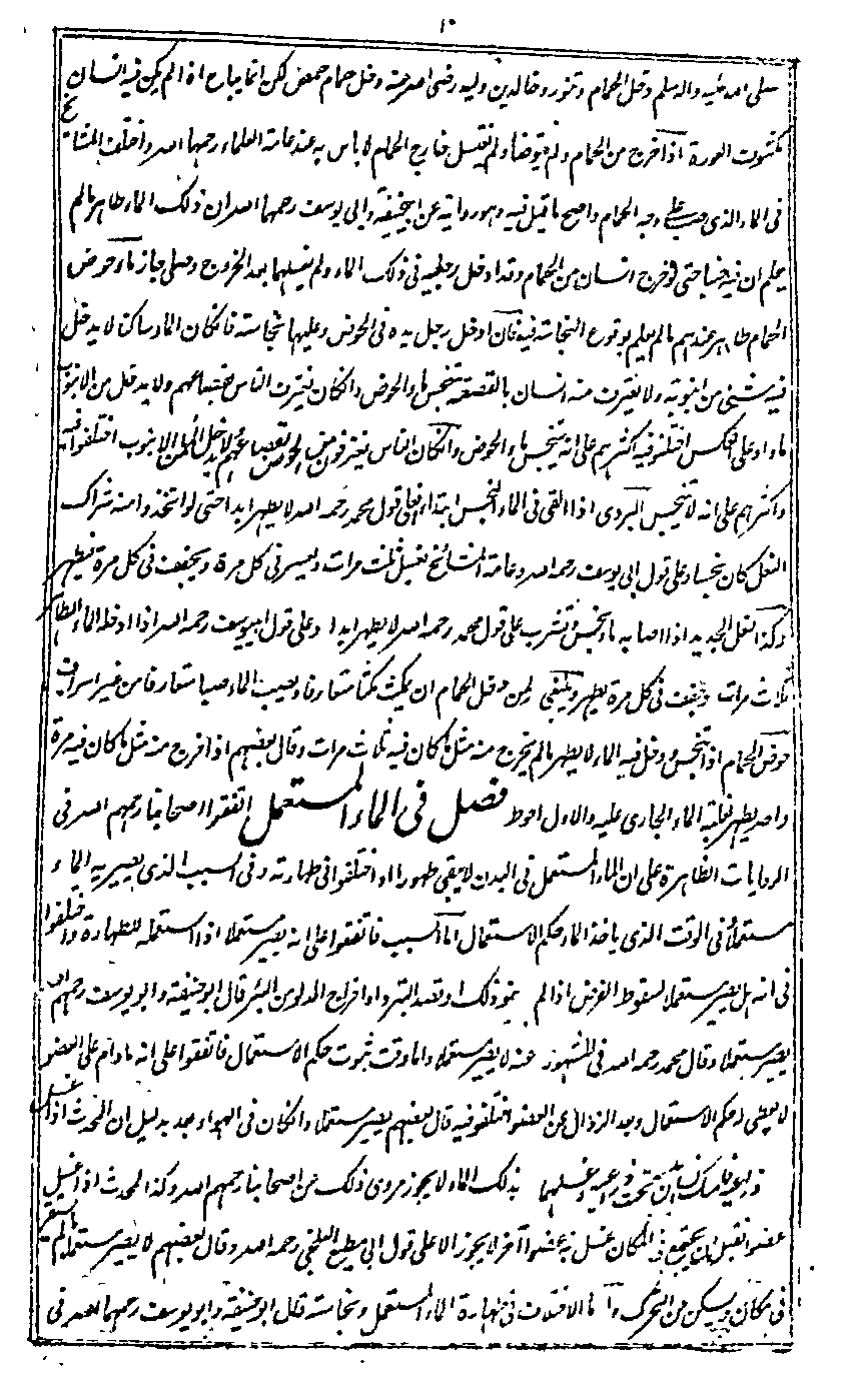 ١٠
صلى الله عليه وآله وسلم دخل الحمام وتنور وخالد بن وليد رضى الله عنه دخل حمام حمص لكن انما يباح اذا لم يكن فيه انسان
مكشوف العورة اذا خرج من الحمام ولم يتوضأ ولم يغتسل خارج الحمام لا باس به عند عامة العلماء رحمهم الله واختلف المشايخ
فى الماء الذى صب على وجه الحمام واصح ما قيل فيه وهو رواية عن ابيحنيفة وابى يوسف رحمهما الله ان ذلك الماء طاهر ما لم
يعلم ان فيه خبثا حتى لو خرج انسان من الحمام وقد ادخل رجليه فى ذلك الماء ولم يغسلهما بعد الخروج وصلى جاز ماء حوض
الحمام طاهر عندهم ما لم يعلم بوقوع النجاسة فيه فان ادخل رجل يده فى الحوض وعليها نجاسة فان كان الماء ساكنا لا يدخل
فيه شئ من انبوبة ولا يغترف منه انسان بالقصعة تنجس ماء الحوض وان كان يغترف الناس بقصاعهم ولا يدخل من الانبوب
ماء او على العكس اختلفوا فيه اكثرهم على انه ينجس ماء الحوض وان كان الناس يغترفون من الحوض بقصاعهم ويدخل الماء من الانبوب اختلفوا فيه
واكثرهم على انه لا ينجس البردى اذا القى فى الماء النجس ابتداء فعلى قول محمد رحمه الله لا يطهر ابدا حتى لو اتخذوا منه شراك
النعل كان نجسا وعلى قول ابى يوسف رحمه الله وعامة المشائخ يغسل ثلث مرات ويعصر فى كل مرة ويجفف فى كل مرة فيطهر
وكذا النعل الجديد اذا اصابه ماء نجس وتشرب على قول محمد رحمه الله لا يطهر ابدا وعلى قول ابيوسف رحمه الله اذا ادخله الماء الطاهر
ثلاث مرات ويجفف فى كل مرة يطهر وينبغى لمن دخل الحمام ان يمكث مكثا متعارفا ويصب الماء صبا متعارفا من غير اسراف
حوض الحمام اذا تنجس ودخل فيه الماء لا يطهر ما لم يخرج منه مثل ما كان فيه ثلاث مرات وقال بعضهم اذا خرج منه مثل ما كان فيه مرة
واحدة يطهر لغلبة الماء الجارى عليه والاول احوط فصل فى الماء المستعمل اتفقوا اصحابنا رحمهم الله فى
الروايات الظاهرة على ان الماء المستعمل فى البدن لا يبقى طهورا واختلفوا فى طهارته وفى السبب الذى يصير به الماء
مستعملا وفى الوقت الذى ياخذ الماء حكم الاستعمال اما السبب فاتفقوا على انه يصير مستعملا اذا استعمله للطهارة واختلفوا
فى انه هل يصير مستعملا لسقوط الفرض اذا لم ينو ذلك او قصد التبرد او اخراج الدلو من البئر قال ابو حنيفة وابو يوسف رحمهم الله
يصير مستعملا وقال محمد رحمه الله فى المشهور عنه لا يصير مستعملا واما وقت ثبوت حكم الاستعمال فاتفقوا على انه ما دام على العضو
لا يعطى له حكم الاستعمال وبعد الزوال عن العضو اختلفوا فيه قال بعضهم يصير مستعملا وان كان فى الهواء بعد بدليل ان المحدث اذا غسل
ذراعيه فامسك انسان يده تحت ذراعيه وغسلهما بذلك الماء لا يجوز مروى ذلك عن اصحابنا رحمهم الله وكذا المحدث اذا غسل
عضوا فقبل ان يجتمع فى المكان غسل به عضوا آخر لا يجوز الا على قول ابى مطيع البلخى رحمه الله وقال بعضهم لا يصير مستعملا ما لم يستقر
فى مكان ويسكن من التحرك واما الاختلاف فى طهارة الماء المستعمل ونجاسته قال ابو حنيفة وابو يوسف رحمهما الله فى